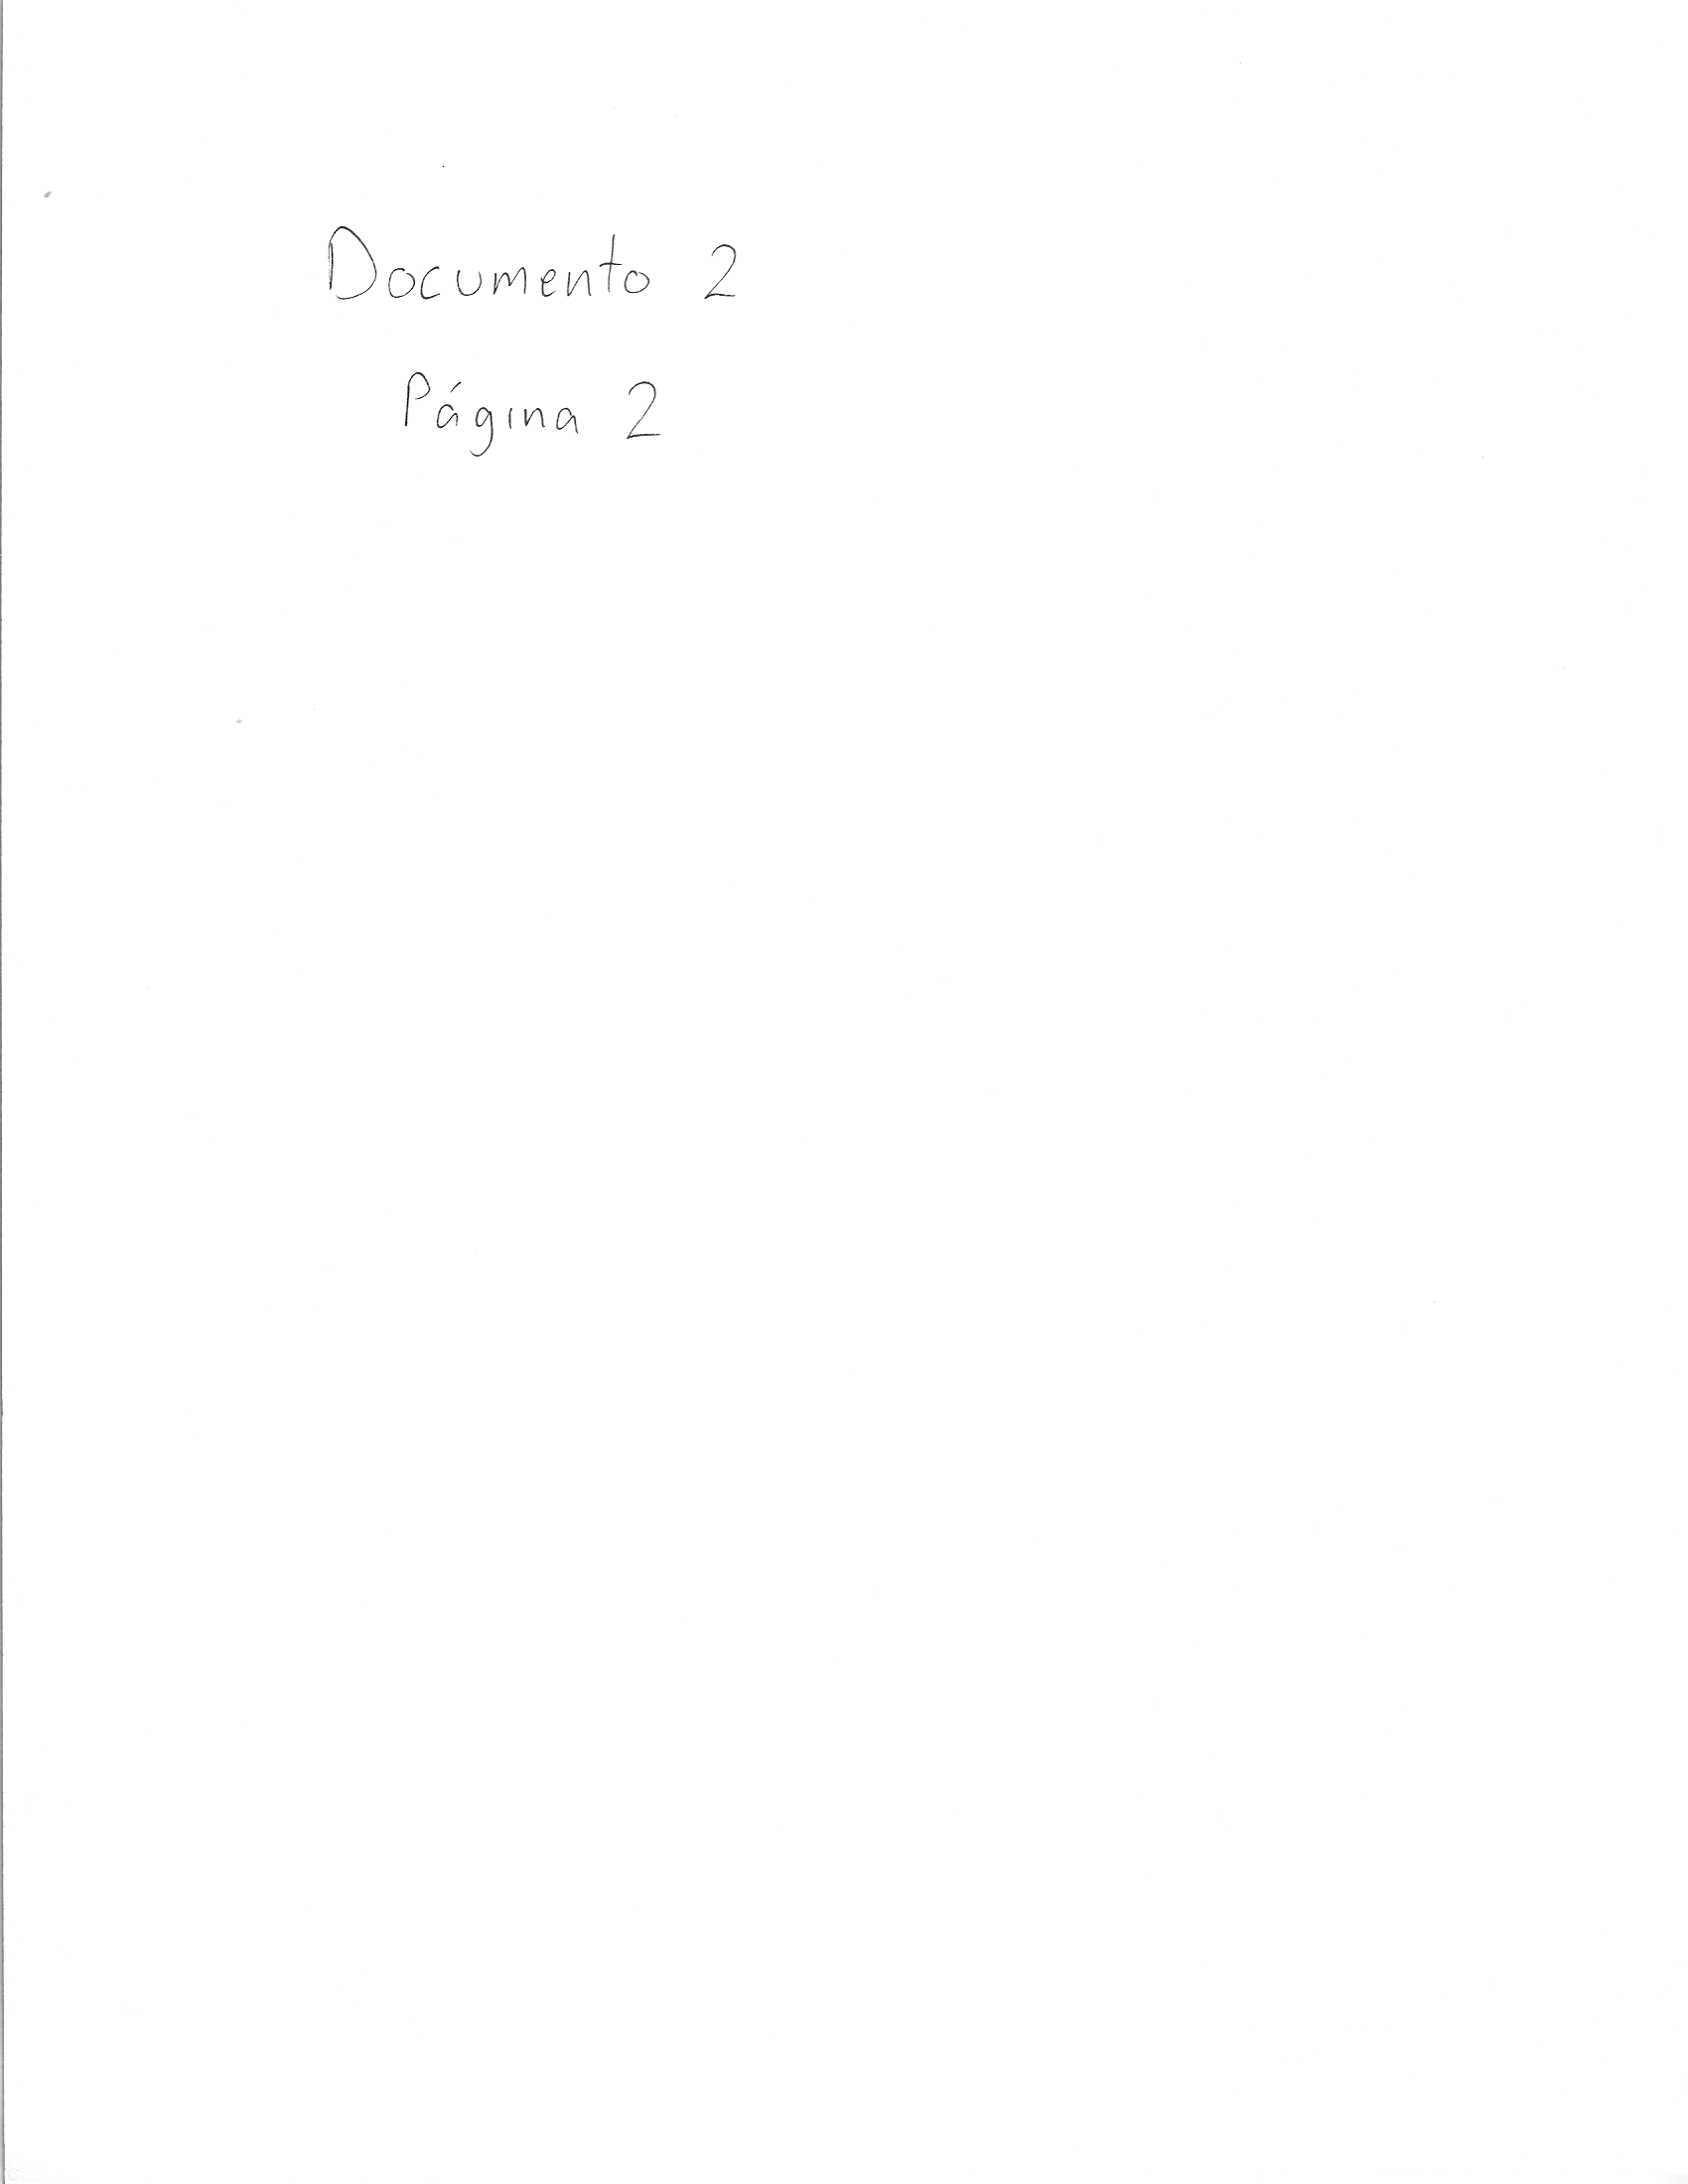 Documento 2
Página 2